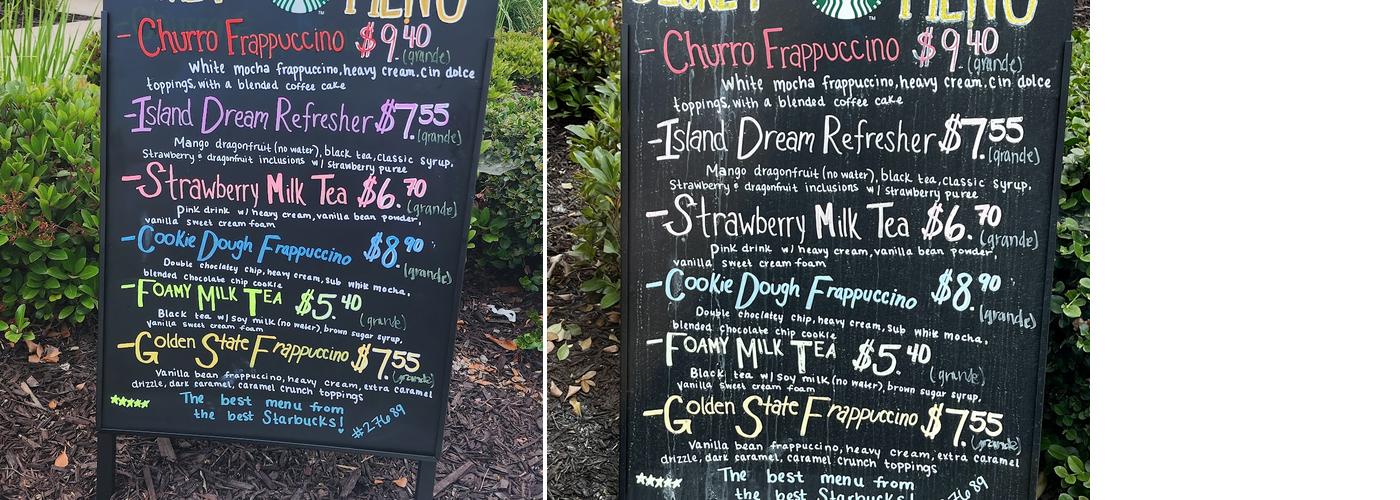 MENU
- Churro Frappuccino $9.40 (grande)
White mocha frappuccino, heavy cream, cin dolce
toppings, with a blended coffee cake
- Island Dream Refresher $7.55 (grande)
Mango dragonfruit (no water), black tea, classic syrup,
Strawberry & dragonfruit inclusions w/ strawberry puree
- Strawberry Milk Tea $6.70 (grande)
Pink drink w/ heavy cream, vanilla bean powder,
vanilla sweet cream foam
- Cookie Dough Frappuccino $8.90 (grande)
Double choclatey chip, heavy cream, sub white mocha,
blended chocolate chip cookie
- FOAMY MILK TEA $5.40 (grande)
Black tea w/ soy milk (no water), brown sugar syrup,
vanilla sweet cream foam
- Golden State Frappuccino $7.55 (grande)
Vanilla bean frappuccino, heavy cream, extra caramel
drizzle, dark caramel, caramel crunch toppings
The best menu from
the best Starbucks!
#27689
DISNEY MENU
- Churro Frappuccino $9.40 (grande)
White mocha frappuccino, heavy cream, cin dolce
toppings, with a blended coffee cake
- Island Dream Refresher $7.55 (grande)
Mango dragonfruit (no water), black tea, classic syrup,
Strawberry & dragonfruit inclusions w/ strawberry puree
- Strawberry Milk Tea $6.70 (grande)
Pink drink w/ heavy cream, vanilla bean powder,
vanilla sweet cream foam
- Cookie Dough Frappuccino $8.90 (grande)
Double choclatey chip, heavy cream, sub white mocha,
blended chocolate chip cookie
- FOAMY MILK TEA $5.40 (grande)
Black tea w/ soy milk (no water), brown sugar syrup,
vanilla sweet cream foam
- Golden State Frappuccino $7.55 (grande)
Vanilla bean frappuccino, heavy cream, extra caramel
drizzle, dark caramel, caramel crunch toppings
The best menu from
the best Starbucks!